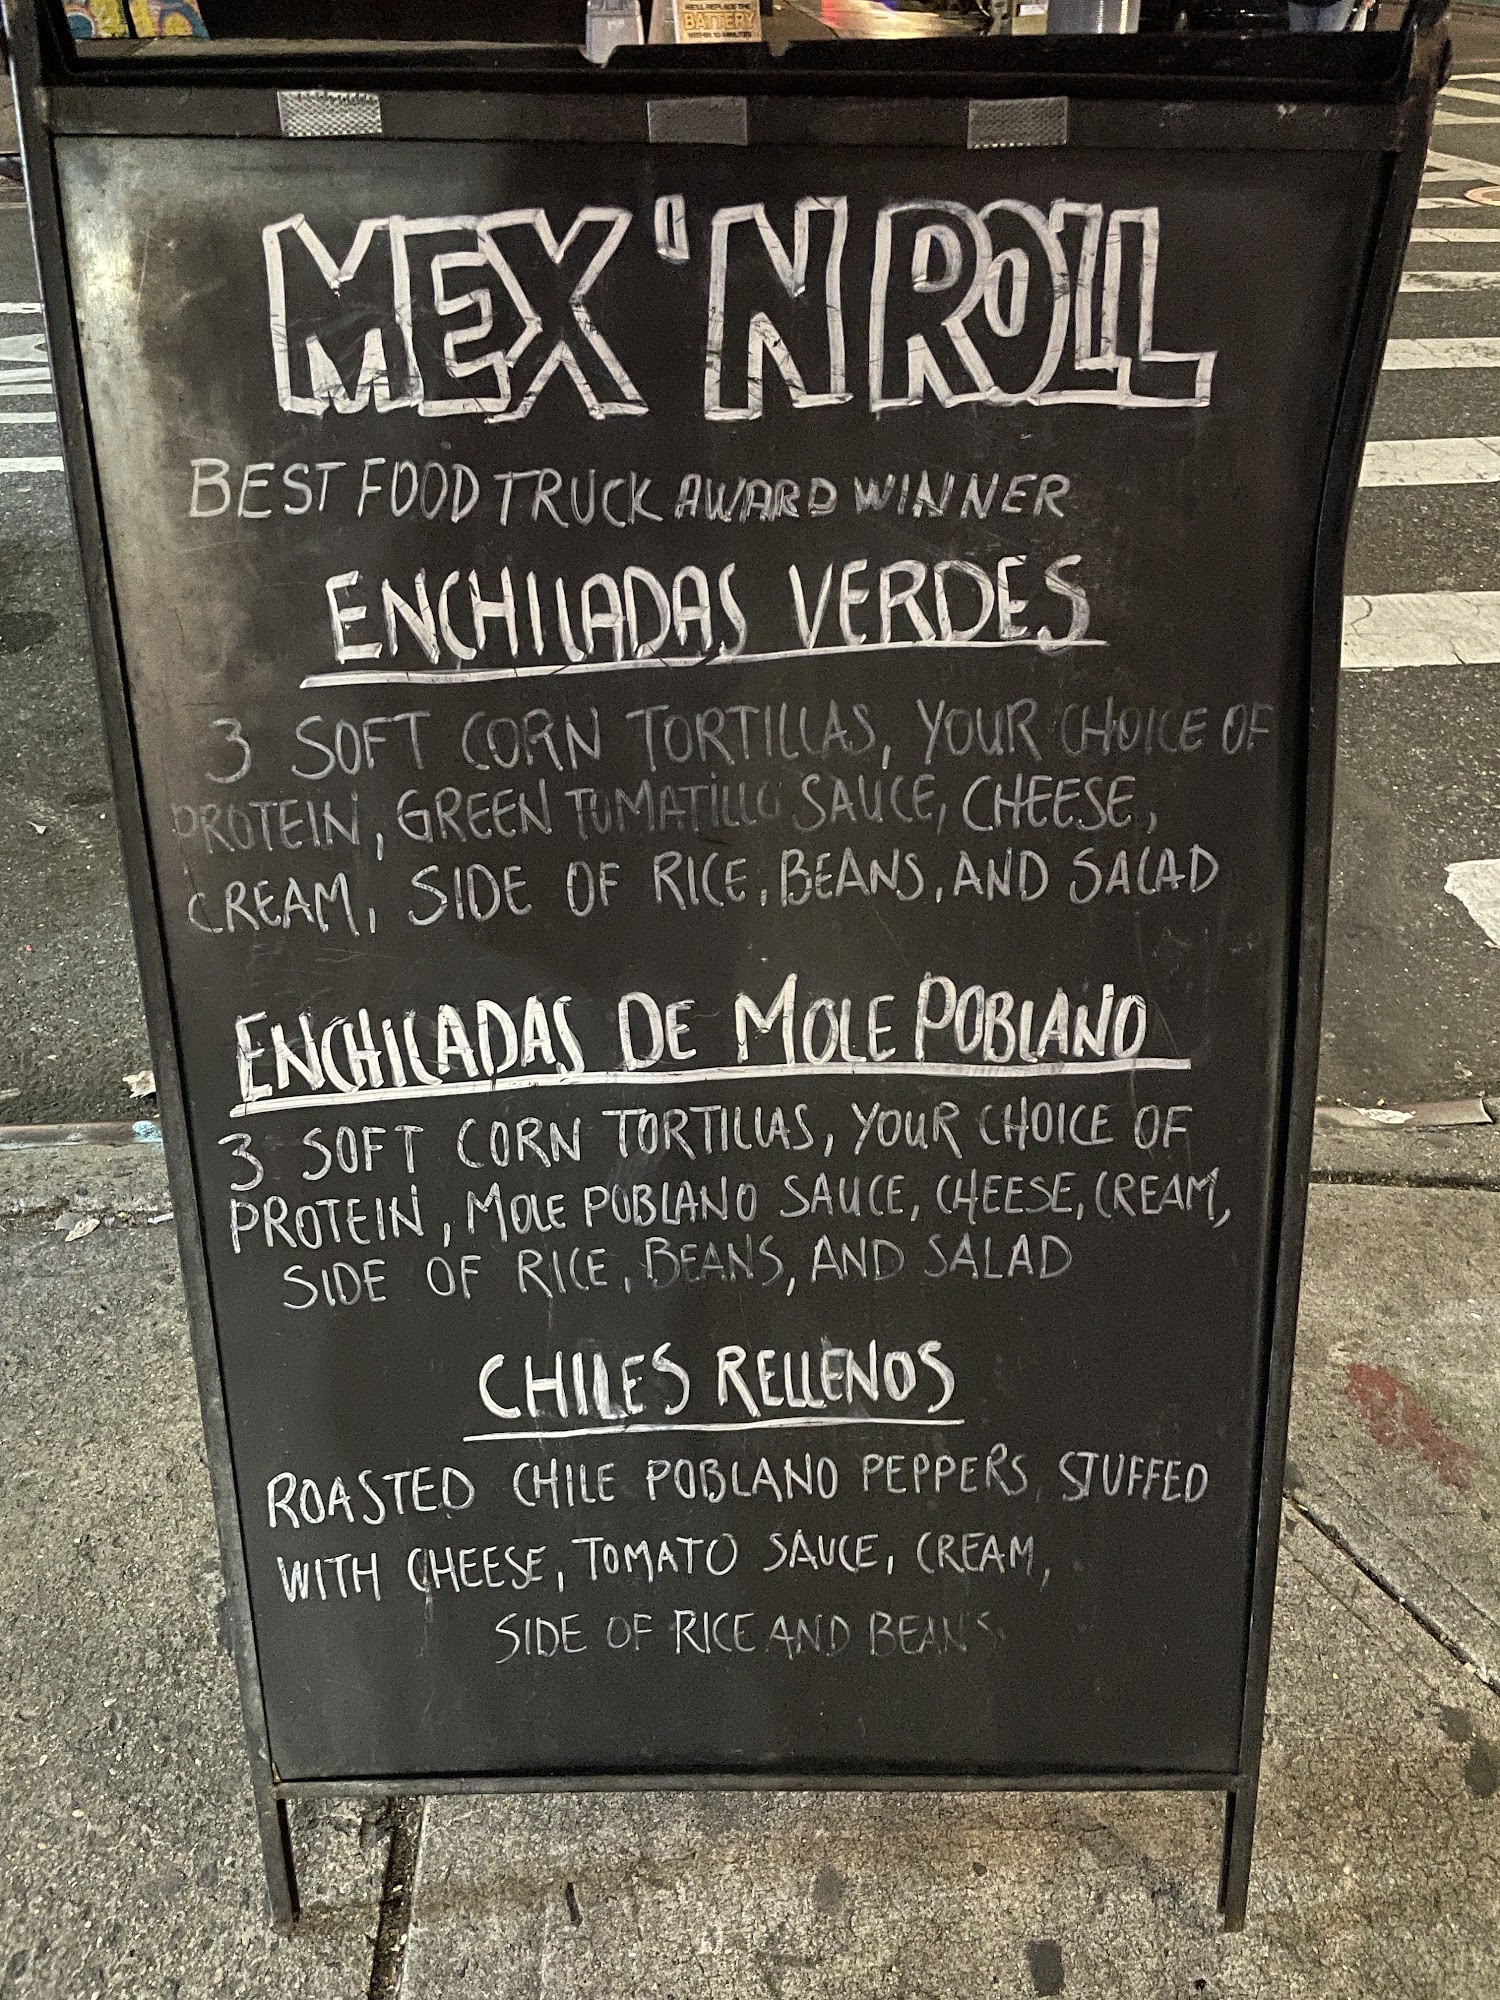 WE'LL REPLACE THE
BATTERY
WITHIN 10 MINUTES
MEX 'N ROLL
BEST FOOD TRUCK AWARD WINNER
ENCHILADAS VERDES
3 SOFT CORN TORTILLAS, YOUR CHOICE OF
PROTEIN, GREEN TOMATILLO SAUCE, CHEESE,
CREAM, SIDE OF RICE, BEANS, AND SALAD
ENCHILADAS DE MOLE POBLANO
3 SOFT CORN TORTILLAS, YOUR CHOICE OF
PROTEIN, MOLE POBLANO SAUCE, CHEESE, CREAM,
SIDE OF RICE, BEANS, AND SALAD
CHILES RELLENOS
ROASTED CHILE POBLANO PEPPERS, STUFFED
WITH CHEESE, TOMATO SAUCE, CREAM,
SIDE OF RICE AND BEANS